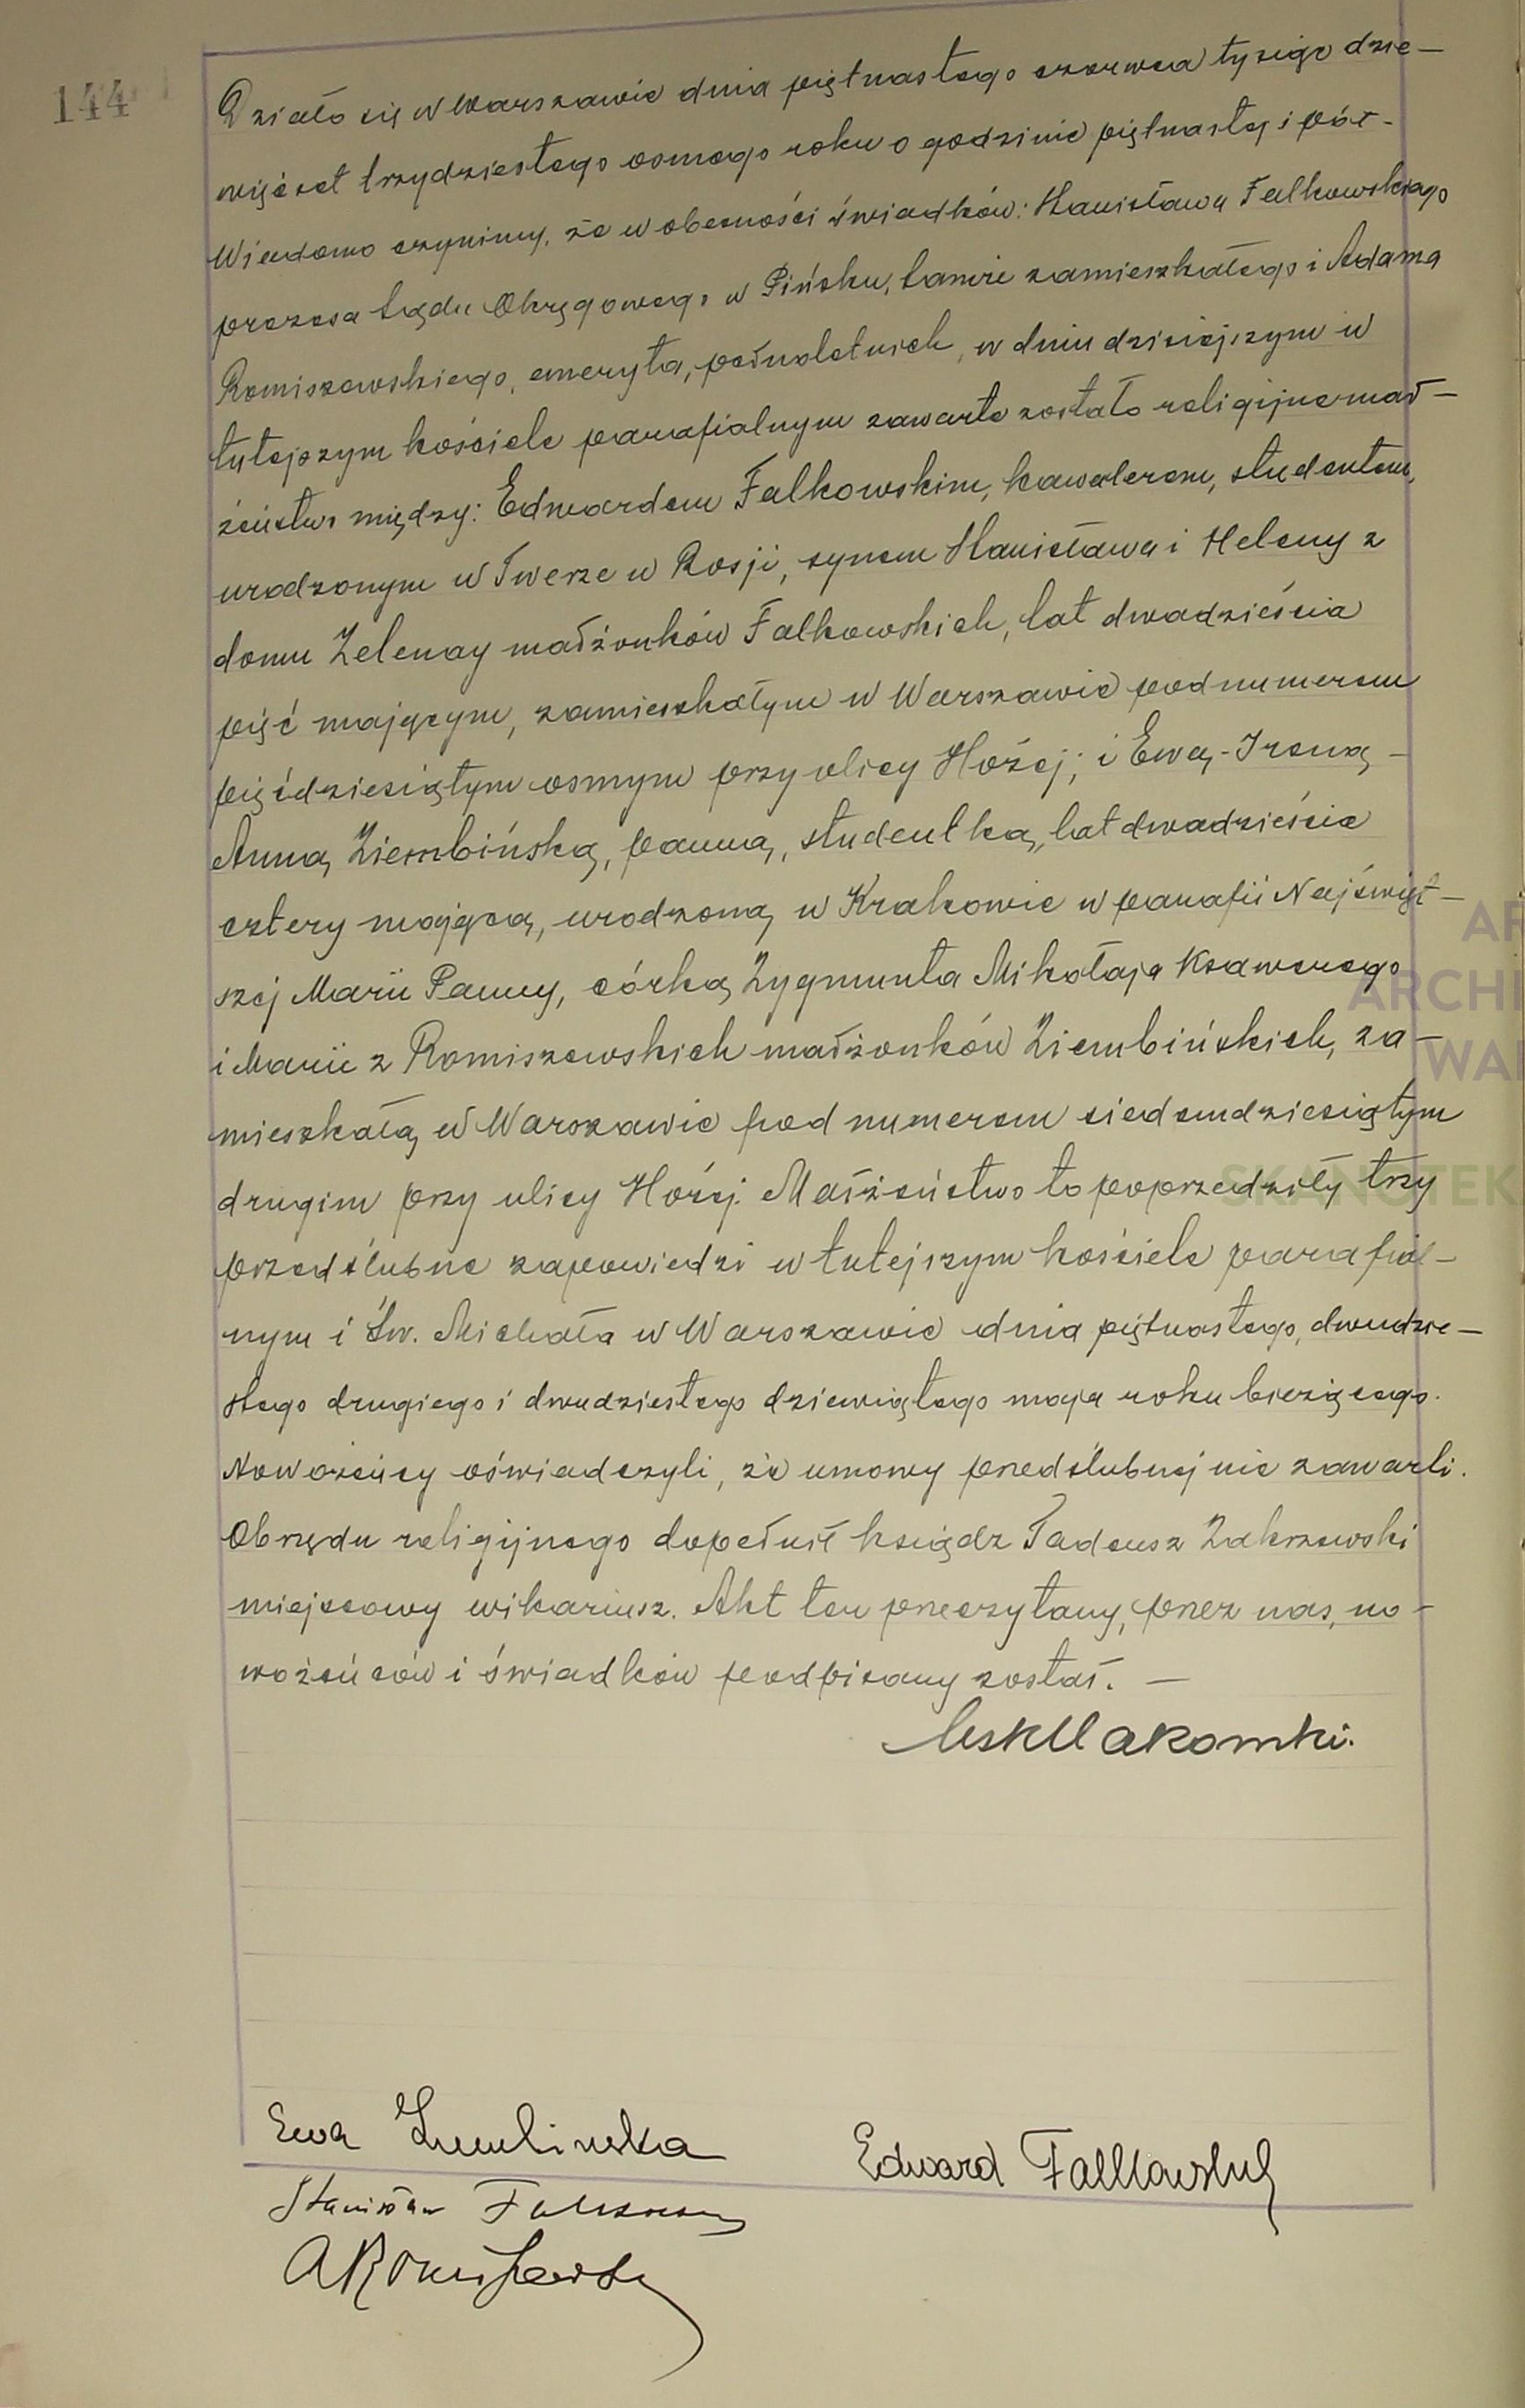 144
Działo się w Warszawie dnia piętnastego czerwca tysiąc dzie-
więćset trzydziestego ósmego roku o godzinie piętnastej i pół-
Wiadomo czynimy, że w obecności świadków: Stanisława Falkowskiego
prezesa Sądu Okręgowego w Pińsku, tamże zamieszkałego i Adama
Romiszewskiego, emeryta, pełnoletnich, w dniu dzisiejszym w
tutejszym kościele parafialnym zawarte zostało religijne mał-
żeństwo między: Edwardem Falkowskim, kawalerem, studentem,
urodzonym w Twerze w Rosji, synem Stanisława i Heleny z
domu Zelenay małżonków Falkowskich, lat dwadzieścia
pięć mającym, zamieszkałym w Warszawie pod numerem
pięćdziesiątym ósmym przy ulicy Hożej; i Ewą-Ireną-
Anną Ziembińską, panną, studentką, lat dwadzieścia
cztery mającą, urodzoną w Krakowie w parafii Najświęt-
szej Marii Panny, córką Zygmunta Mikołaja Ksawerego
i Marii z Romiszewskich małżonków Ziembińskich, za-
mieszkałą w Warszawie pod numerem siedemdziesiątym
drugim przy ulicy Hożej. Małżeństwo to poprzedziły trzy
przedślubne zapowiedzi w tutejszym kościele parafial-
nym i Św. Michała w Warszawie dnia piętnastego, dwudzie-
stego drugiego i dwudziestego dziewiątego maja roku bieżącego.
Nowożeńcy oświadczyli, że umowy przedślubnej nie zawarli.
Obrzędu religijnego dopełnił ksiądz Tadeusz Zakrzewski
miejscowy wikariusz. Akt ten przeczytany, przez nas, no-
wożeńców i świadków podpisany został. —
Ewa Ziembińska
Edward Falkowski
Stanisław Falkowski
ARomiszewski
AR
ARCHI
WAR
SKANOTEK